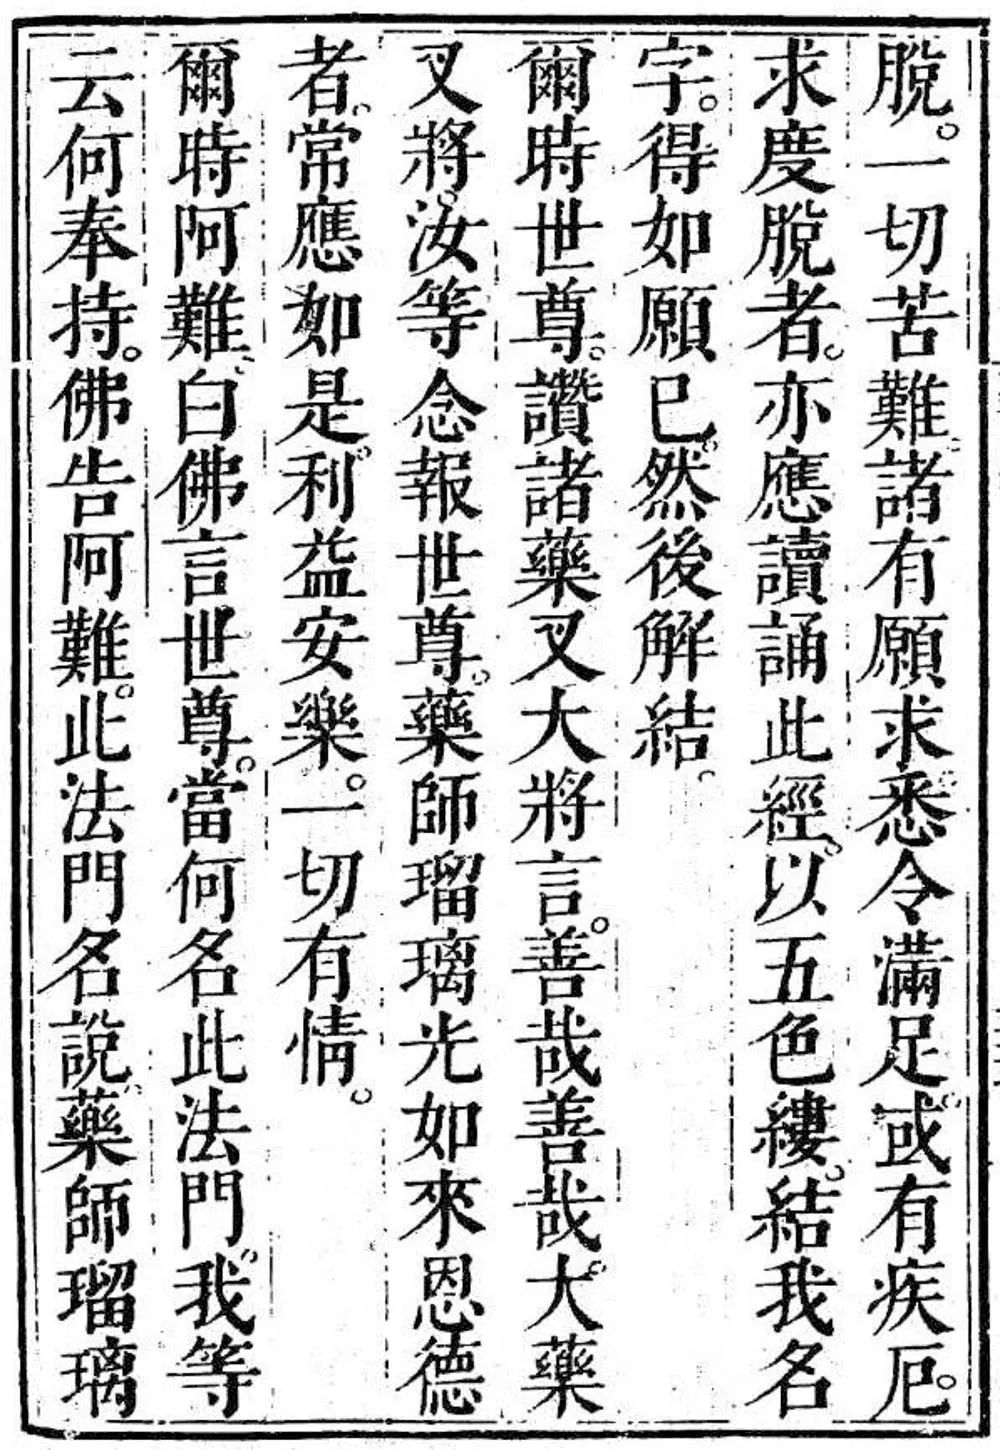 脫。一切苦難。諸有願求。悉令滿足。或有疾厄。
求度脫者。亦應讀誦此經。以五色縷。結我名
字。得如願已。然後解結。
爾時世尊。讚諸藥叉大將言。善哉善哉。大藥
叉將。汝等念報世尊。藥師瑠璃光如來恩德
者。常應如是。利益安樂。一切有情。
爾時阿難。白佛言世尊。當何名此法門。我等
云何奉持。佛告阿難。此法門名說。藥師瑠璃